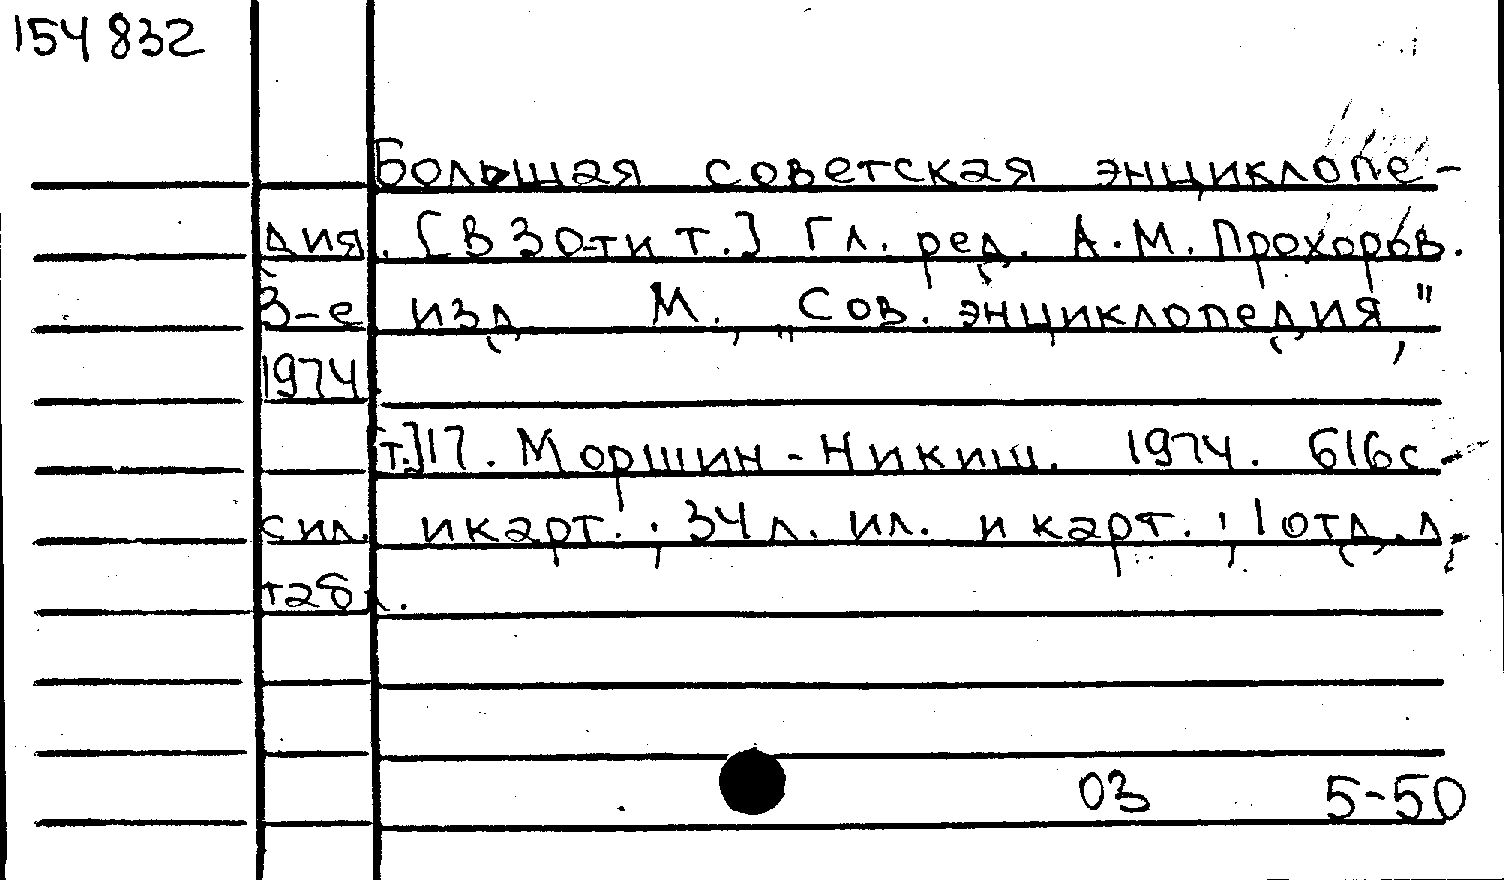 154832
Большая советская энциклопе-
дия. [В 30-ти т.] Гл. ред. А.М. Прохоров.
3-е изд М., „Сов. энциклопедия",
1974.
[т.]17. Моршин-Никиш. 1974. 616с
с ил. и карт.; 34 л. ил. и карт.; 1 отд. л.
табл.
03 5-50